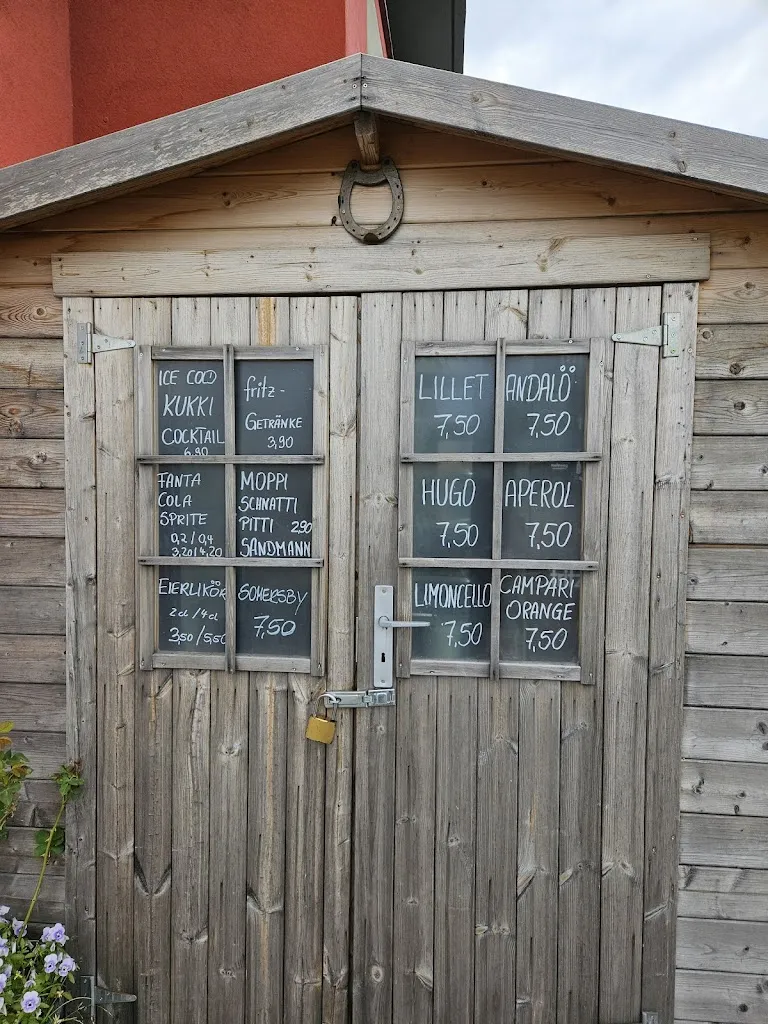 ICE COLD
KUKKI
COCKTAIL
6,90
fritz-
GETRÄNKE
3,90
FANTA
COLA
SPRITE
0,2/0,4
3,20/4,20
MOPPI
SCHNATTI
PITTI 2,90
SANDMANN
EIERLIKÖR
2cl/4cl
3,50/5,50
SOMERSBY
7,50
LILLET
7,50
ANDALÖ
7,50
HUGO
7,50
APEROL
7,50
LIMONCELLO
7,50
CAMPARI
ORANGE
7,50